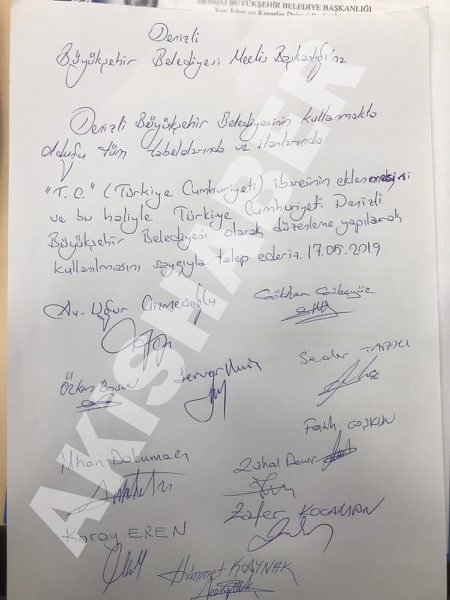 DENİZLİ BÜYÜKŞEHİR BELEDİYE BAŞKANLIĞI
Denizli
Büyükşehir Belediyesi Meclis Başkanlığı'na
Denizli Büyükşehir Belediyesinin kullanmakta
olduğu tüm tabelalarında ve ilanlarında
"T.C." (Türkiye Cumhuriyeti) ibaresinin eklenmesini
ve bu haliyle Türkiye Cumhuriyeti Denizli
Büyükşehir Belediyesi olarak düzenleme yapılarak
kullanılmasını saygıyla talep ederiz. 17.05.2019
Av. Uğur Gizmecioğlu
Gökhan Gübgüz
Özkan
Server
Serdar
Fatih COŞKUN
İlhan Dokumacı
Zühal Demir
Zafer KOCAMAN
Koray EREN
Himmet KAYNAK
AKISHABER